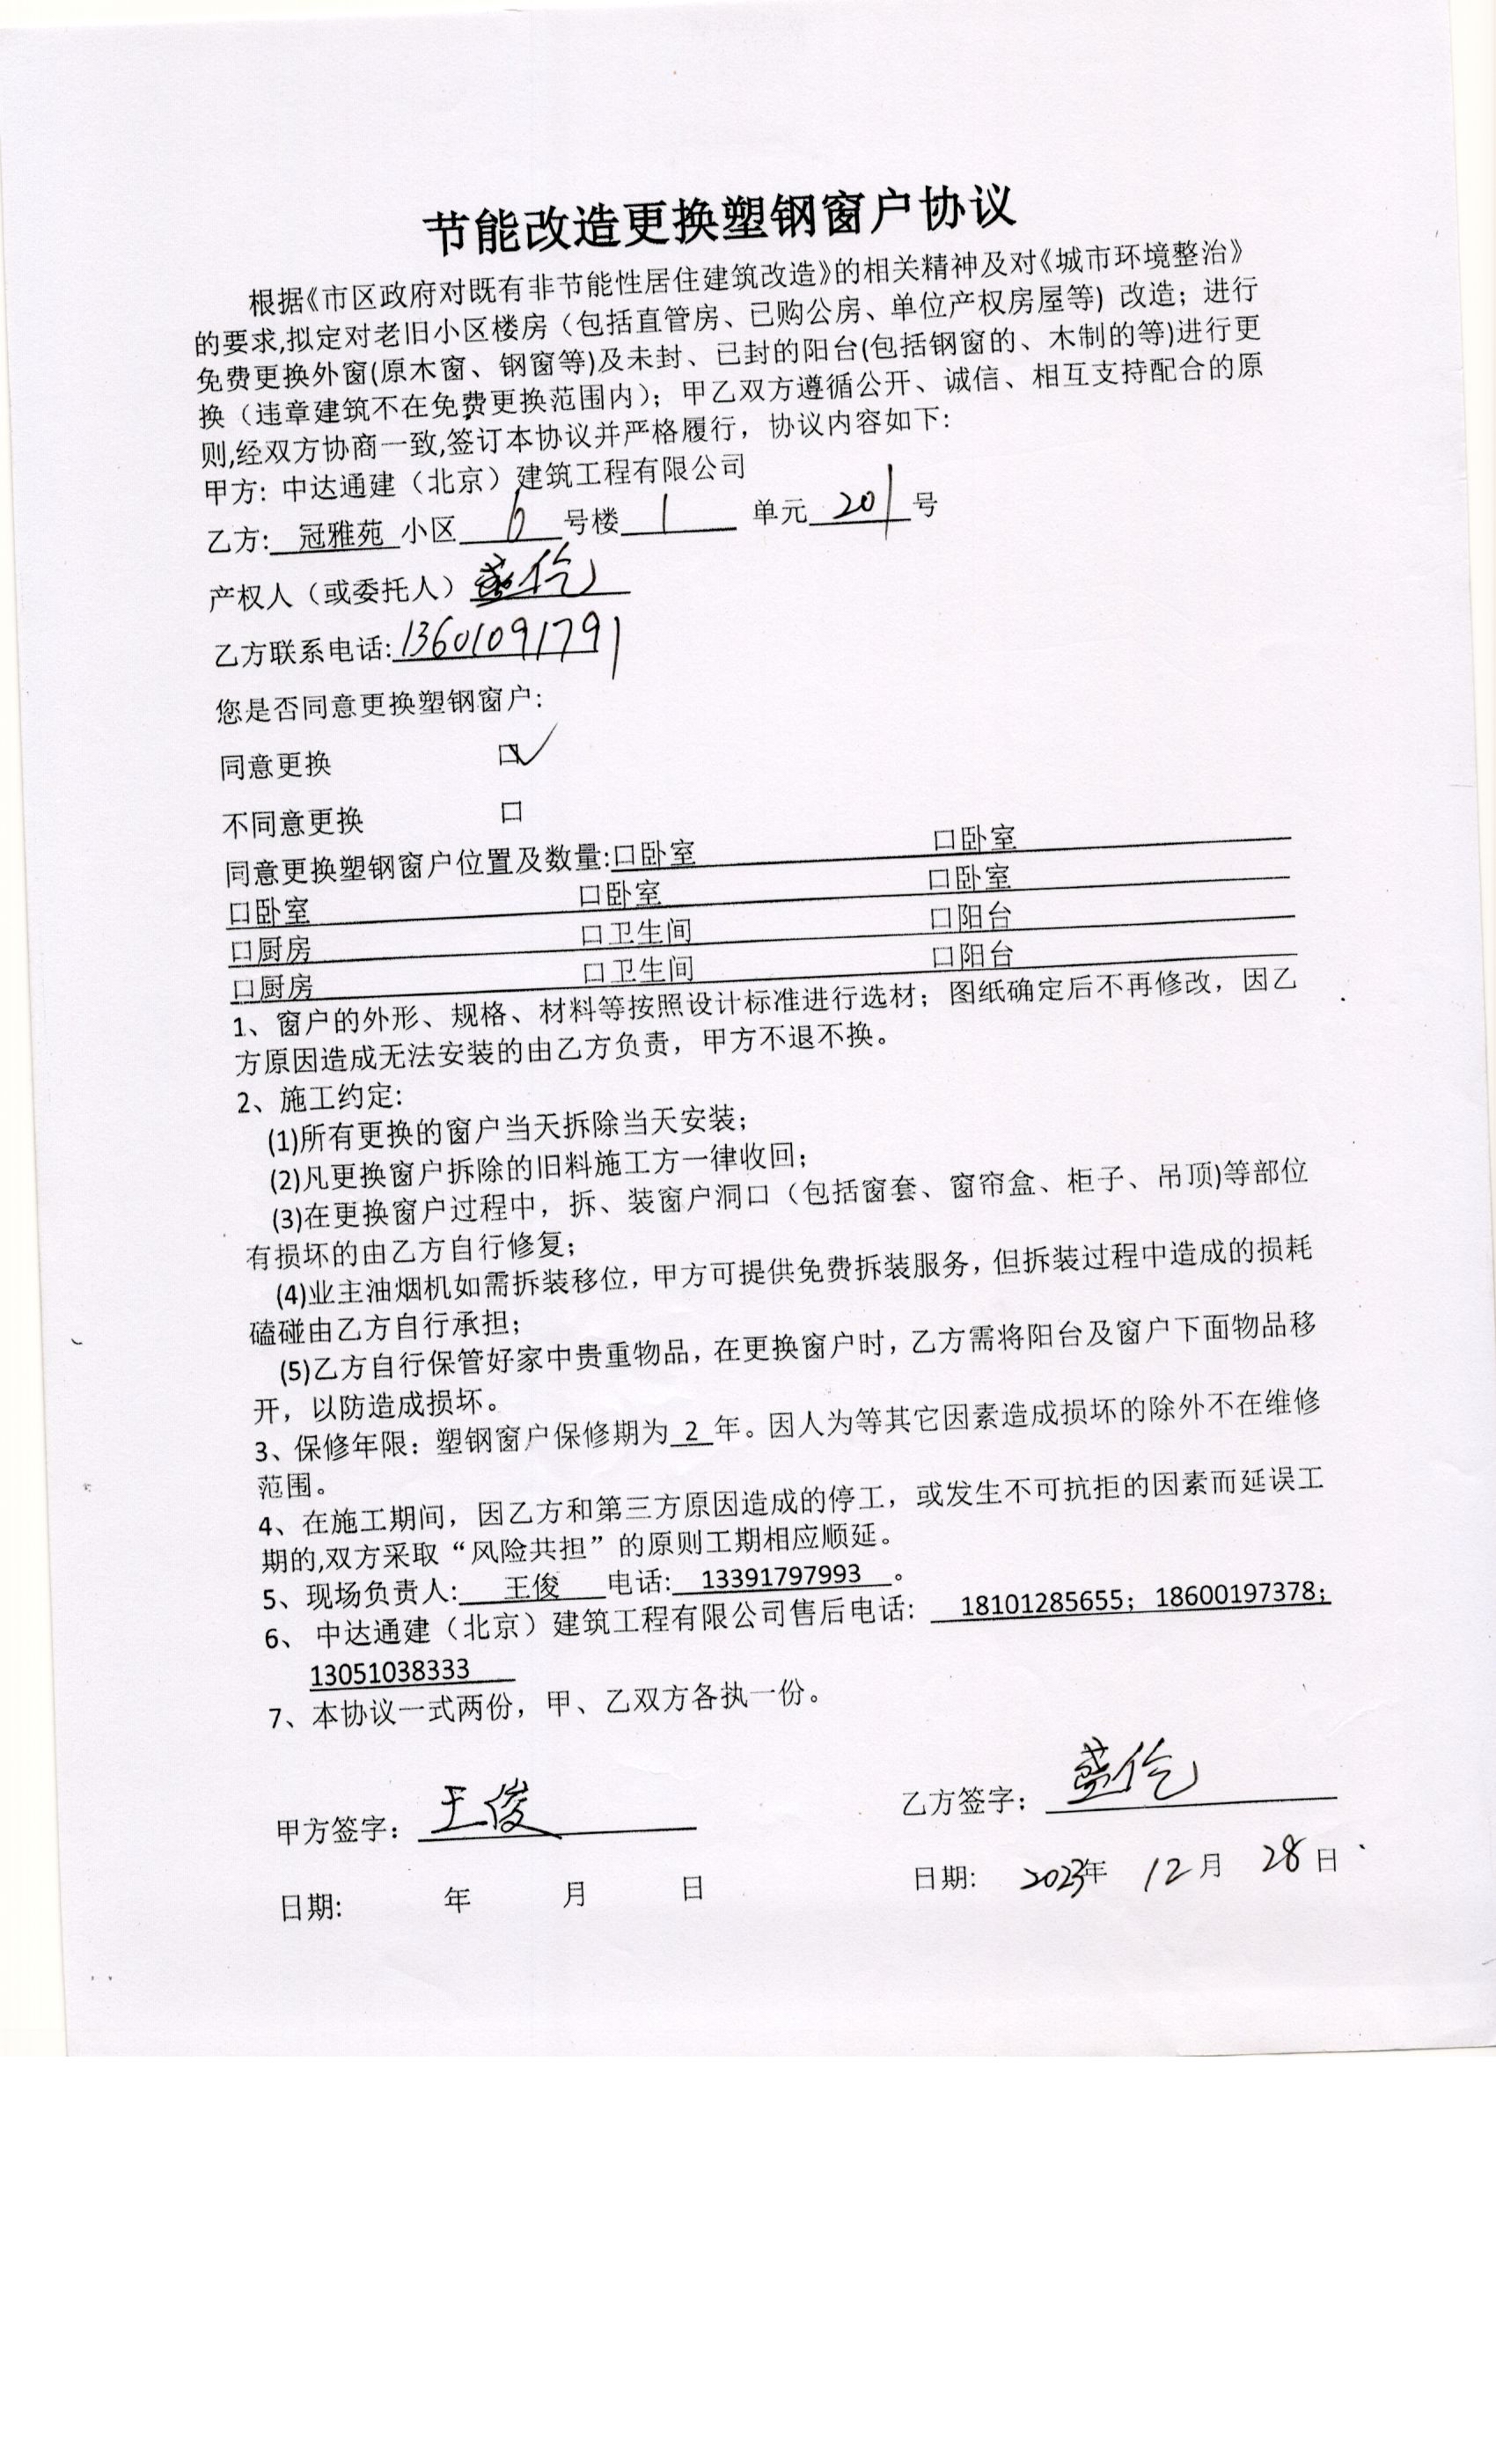 节能改造更换塑钢窗户协议
根据《市区政府对既有非节能性居住建筑改造》的相关精神及对《城市环境整治》
的要求,拟定对老旧小区楼房（包括直管房、已购公房、单位产权房屋等) 改造；进行
免费更换外窗(原木窗、钢窗等)及未封、已封的阳台(包括钢窗的、木制的等)进行更
换（违章建筑不在免费更换范围内)；甲乙双方遵循公开、诚信、相互支持配合的原
则,经双方协商一致,签订本协议并严格履行，协议内容如下:
甲方: 中达通建（北京）建筑工程有限公司
乙方: 冠雅苑 小区 6 号楼 1 单元 201 号
产权人（或委托人）盛伦
乙方联系电话:13601091791
您是否同意更换塑钢窗户:
同意更换 ☑
不同意更换 口
同意更换塑钢窗户位置及数量:口卧室 口卧室
口卧室 口卧室 口卧室
口厨房 口卫生间 口阳台
口厨房 口卫生间 口阳台
1、窗户的外形、规格、材料等按照设计标准进行选材；图纸确定后不再修改，因乙
方原因造成无法安装的由乙方负责，甲方不退不换。
2、施工约定:
(1)所有更换的窗户当天拆除当天安装；
(2)凡更换窗户拆除的旧料施工方一律收回；
(3)在更换窗户过程中，拆、装窗户洞口（包括窗套、窗帘盒、柜子、吊顶)等部位
有损坏的由乙方自行修复；
(4)业主油烟机如需拆装移位，甲方可提供免费拆装服务，但拆装过程中造成的损耗
磕碰由乙方自行承担；
(5)乙方自行保管好家中贵重物品，在更换窗户时，乙方需将阳台及窗户下面物品移
开，以防造成损坏。
3、保修年限：塑钢窗户保修期为 2 年。因人为等其它因素造成损坏的除外不在维修
范围。
4、在施工期间，因乙方和第三方原因造成的停工，或发生不可抗拒的因素而延误工
期的,双方采取“风险共担”的原则工期相应顺延。
5、现场负责人: 王俊 电话: 13391797993 。
6、 中达通建（北京）建筑工程有限公司售后电话: 18101285655；18600197378；
13051038333
7、本协议一式两份，甲、乙双方各执一份。
甲方签字: 王俊 乙方签字: 盛伦
日期: 年 月 日 日期: 2023年 12月 28日